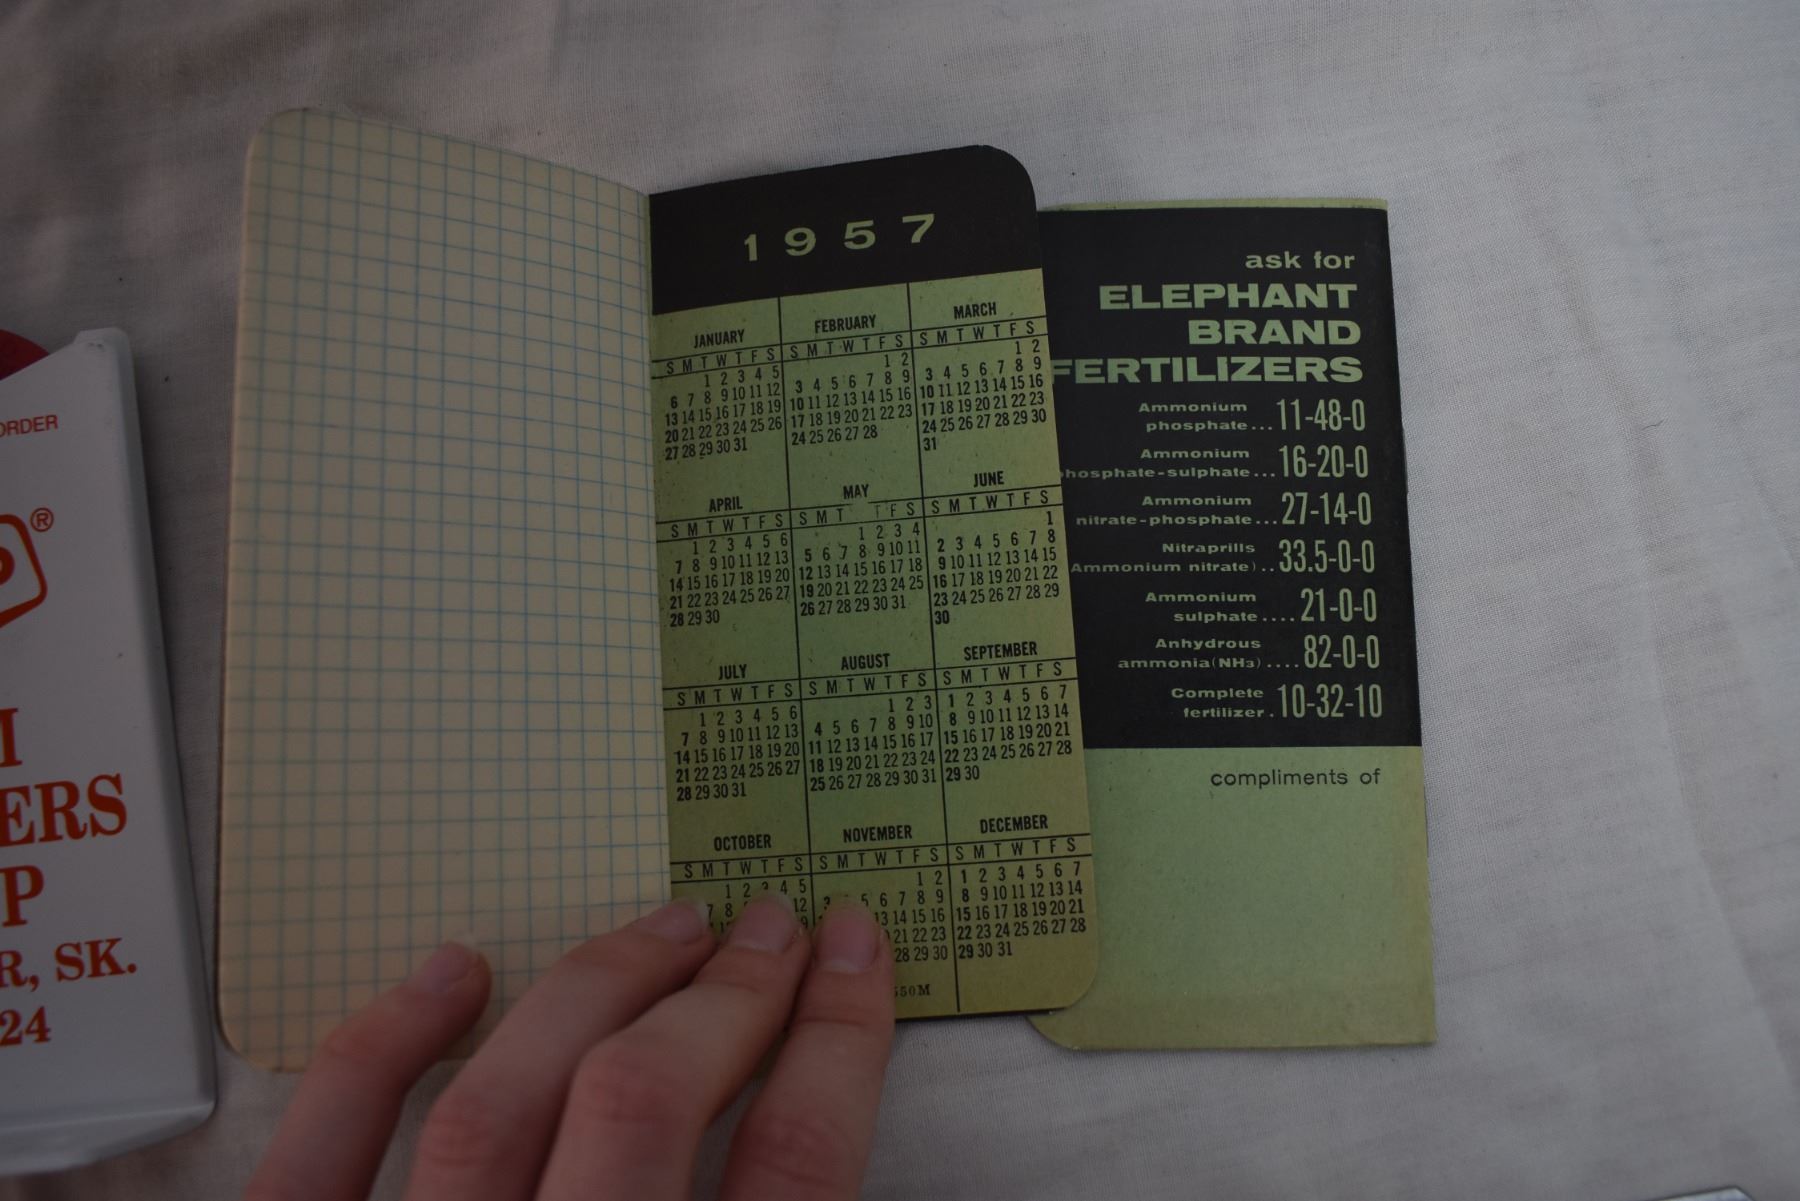 ORDER
®
ERS
P
R, SK.
24
1957
JANUARY
S M T W T F S
1 2 3 4 5
6 7 8 9 10 11 12
13 14 15 16 17 18 19
20 21 22 23 24 25 26
27 28 29 30 31
FEBRUARY
S M T W T F S
1 2
3 4 5 6 7 8 9
10 11 12 13 14 15 16
17 18 19 20 21 22 23
24 25 26 27 28
MARCH
S M T W T F S
1 2
3 4 5 6 7 8 9
10 11 12 13 14 15 16
17 18 19 20 21 22 23
24 25 26 27 28 29 30
31
APRIL
S M T W T F S
1 2 3 4 5 6
7 8 9 10 11 12 13
14 15 16 17 18 19 20
21 22 23 24 25 26 27
28 29 30
MAY
S M T T F S
1 2 3 4
5 6 7 8 9 10 11
12 13 14 15 16 17 18
19 20 21 22 23 24 25
26 27 28 29 30 31
JUNE
S M T W T F S
1
2 3 4 5 6 7 8
9 10 11 12 13 14 15
16 17 18 19 20 21 22
23 24 25 26 27 28 29
30
JULY
S M T W T F S
1 2 3 4 5 6
7 8 9 10 11 12 13
14 15 16 17 18 19 20
21 22 23 24 25 26 27
28 29 30 31
AUGUST
S M T W T F S
1 2 3
4 5 6 7 8 9 10
11 12 13 14 15 16 17
18 19 20 21 22 23 24
25 26 27 28 29 30 31
SEPTEMBER
S M T W T F S
1 2 3 4 5 6 7
8 9 10 11 12 13 14
15 16 17 18 19 20 21
22 23 24 25 26 27 28
29 30
OCTOBER
S M T W T F S
1 2 3 4 5
7 8 12
NOVEMBER
S M T W T F S
1 2
3 5 6 7 8 9
13 14 15 16
21 22 23
28 29 30
550M
DECEMBER
S M T W T F S
1 2 3 4 5 6 7
8 9 10 11 12 13 14
15 16 17 18 19 20 21
22 23 24 25 26 27 28
29 30 31
ask for
ELEPHANT
BRAND
FERTILIZERS
Ammonium
phosphate... 11-48-0
Ammonium
phosphate-sulphate... 16-20-0
Ammonium
nitrate-phosphate... 27-14-0
Nitraprills
Ammonium nitrate).. 33.5-0-0
Ammonium
sulphate.... 21-0-0
Anhydrous
ammonia(NH₃).... 82-0-0
Complete
fertilizer. 10-32-10
compliments of